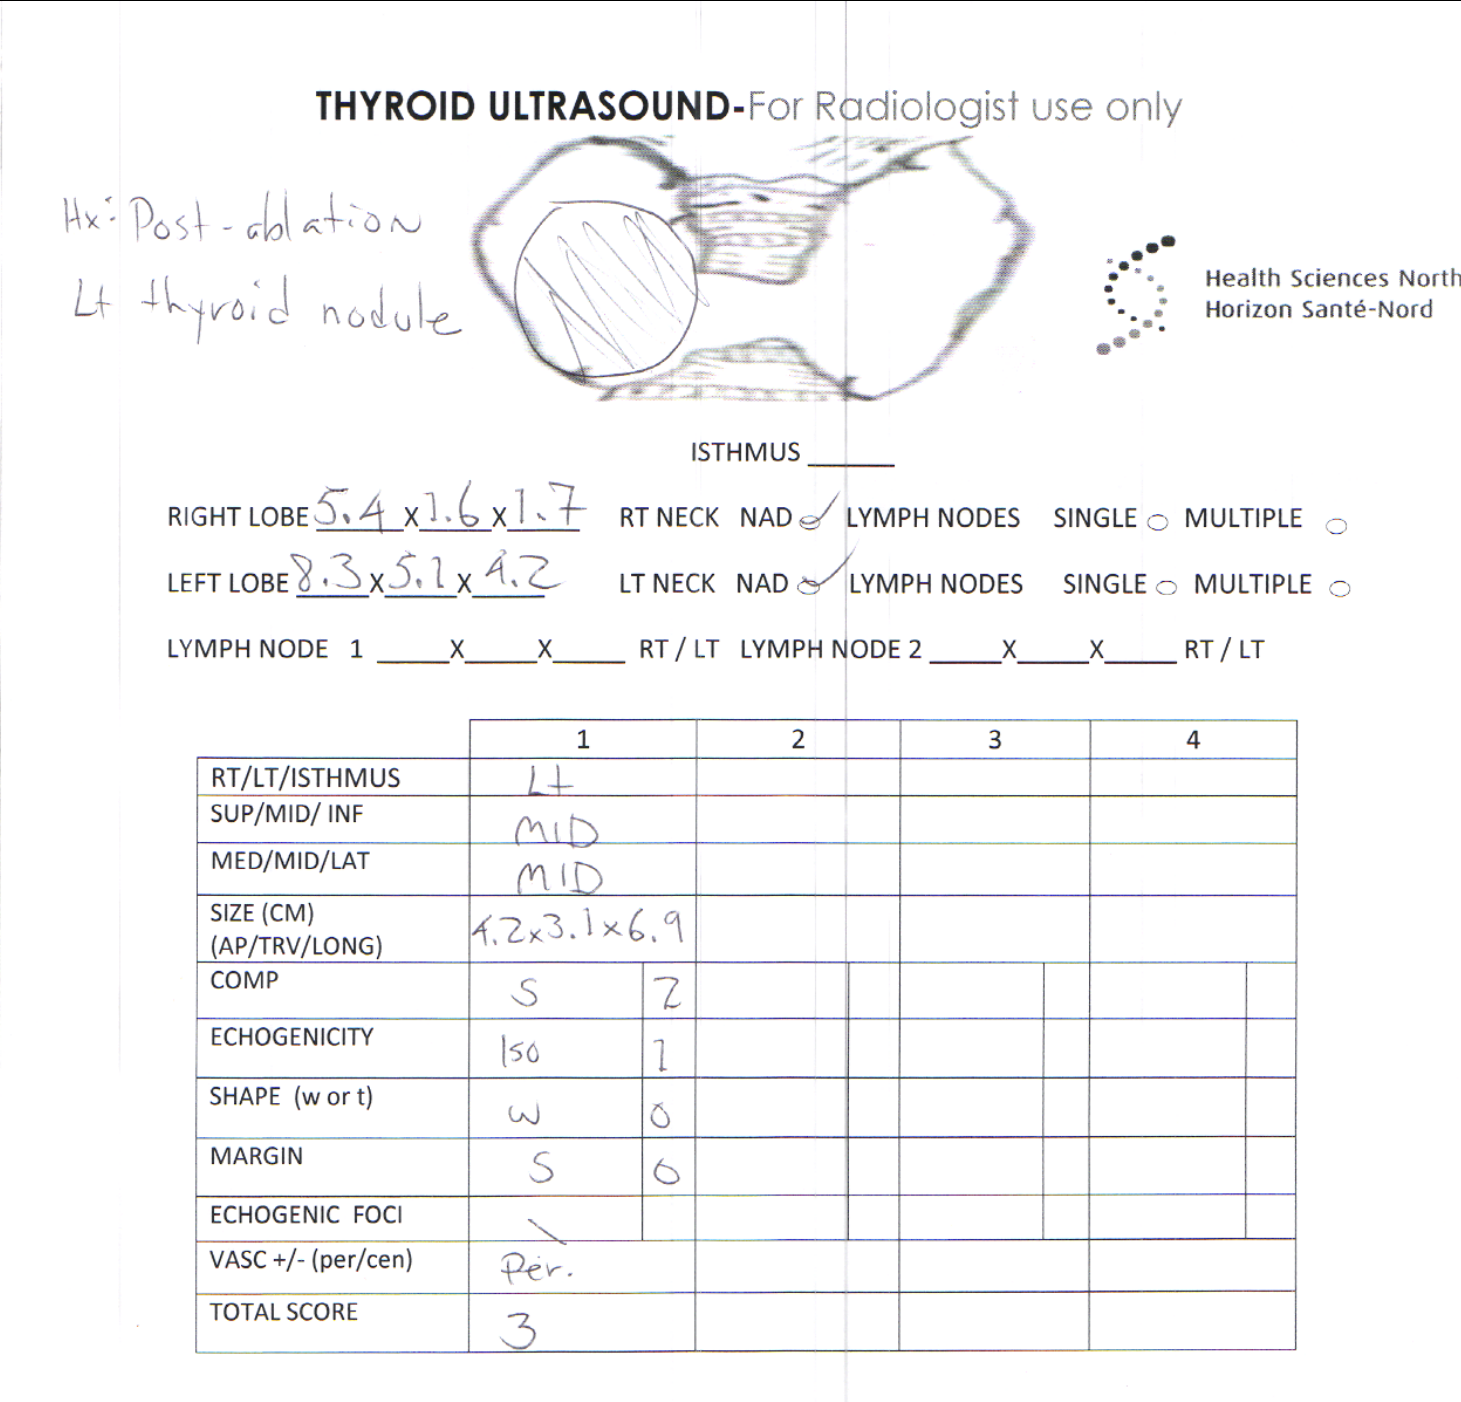 THYROID ULTRASOUND-For Radiologist use only
Hx: Post-ablation
Lt thyroid nodule
Health Sciences North
Horizon Santé-Nord
ISTHMUS ______
RIGHT LOBE 5.4 X 1.6 X 1.7 RT NECK NAD ✓ LYMPH NODES SINGLE ○ MULTIPLE ○
LEFT LOBE 8.3 X 5.1 X 4.2 LT NECK NAD ✓ LYMPH NODES SINGLE ○ MULTIPLE ○
LYMPH NODE 1 _____X_____X_____ RT / LT LYMPH NODE 2 _____X_____X_____ RT / LT
1 2 3 4
RT/LT/ISTHMUS Lt
SUP/MID/ INF MID
MED/MID/LAT MID
SIZE (CM)
(AP/TRV/LONG) 4.2x3.1x6.9
COMP S 2
ECHOGENICITY Iso 1
SHAPE (w or t) W 0
MARGIN S 0
ECHOGENIC FOCI \
VASC +/- (per/cen) Per.
TOTAL SCORE 3